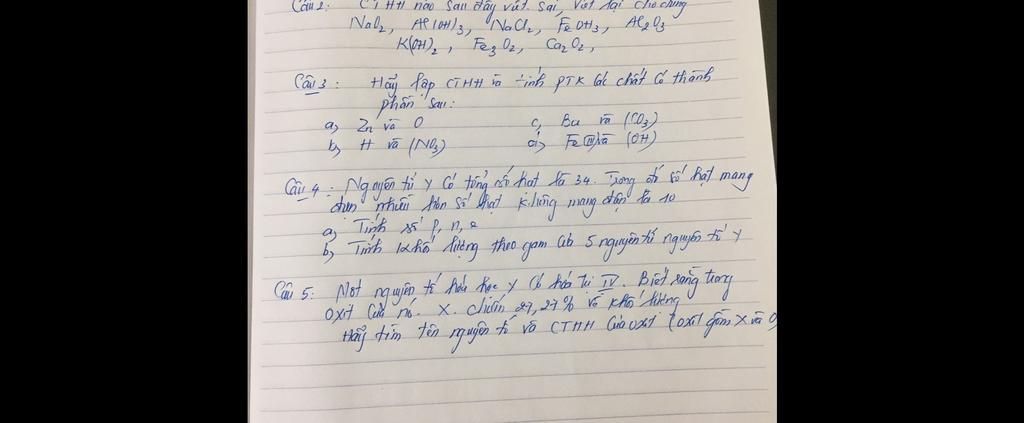 Câu 2: CTHH nào sau đây viết sai, viết lại cho đúng
NaO₂, Al(OH)₃, NaCl₂, FeOH₃, Al₂O₃
K(OH)₂, Fe₃O₂, Ca₂O₂,
Câu 3: Hãy lập CTHH và tính PTK các chất có thành
phần sau:
a, Zn và O c, Ba và (CO₃)
b, H và (NO₃) d, Fe(III) và (OH)
Câu 4: Nguyên tử Y có tổng số hạt là 34. Trong đó số hạt mang
điện nhiều hơn số hạt không mang điện là 10
a, Tính số p, n, e
b, Tính khối lượng theo gam của 5 nguyên tử nguyên tố Y
Câu 5: Một nguyên tố hóa học X có hóa trị IV. Biết rằng trong
oxit của nó. X. chiếm 27,27% về khối lượng
Hãy tìm tên nguyên tố và CTHH của oxit (oxit gồm X và O